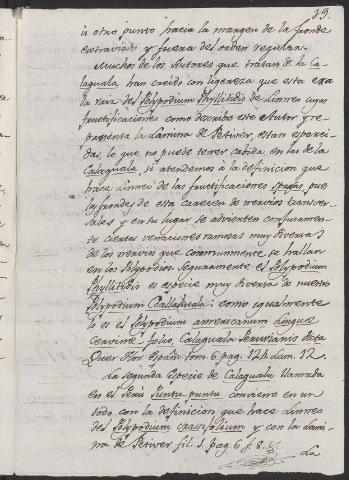 39.
u otro punto hacia la margen de la fronde
extraviado y fuera del orden regular.
Muchos de los Autores que tratan de la Ca-
laguala han creido con ligereza que esta era
la raiz del Polypodium Phyllitidis de Linneo cuyas
fructificaciones como describe este Autor y re-
presenta la Lamina de Petiver, estan esparci-
das, lo que no puede tener cabida en las de la
Calaguala, si atendemos à la definicion que
hace Linneo de las fructificaciones pues
las frondes de esta carecen de nervios transver-
sales y en su lugar se advierten confusamen-
te ciertas venaciones ramosas muy diversas
de los nervios que communmente se hallan
en los Polypodios. Seguramente el Polypodium
Phyllitidis es especie muy diversa de nuestro
Polypodium Ccallahuala: como igualmente
lo es el Polypodium americanum Linguae
Cervinae folio, Calaguala Peruvianis dicta
Quer Flor. Españ. tom. 6 pag. 124 Lam. 12.
La segunda Especie de Calaguala llamada
en el Perù Puntu-puntu conviene en un
todo con la definicion que hace Linneo
del Polypodium crassifolium y con la Lami-
na de Petiver fil. 1. pag. 6 f. 8.
La